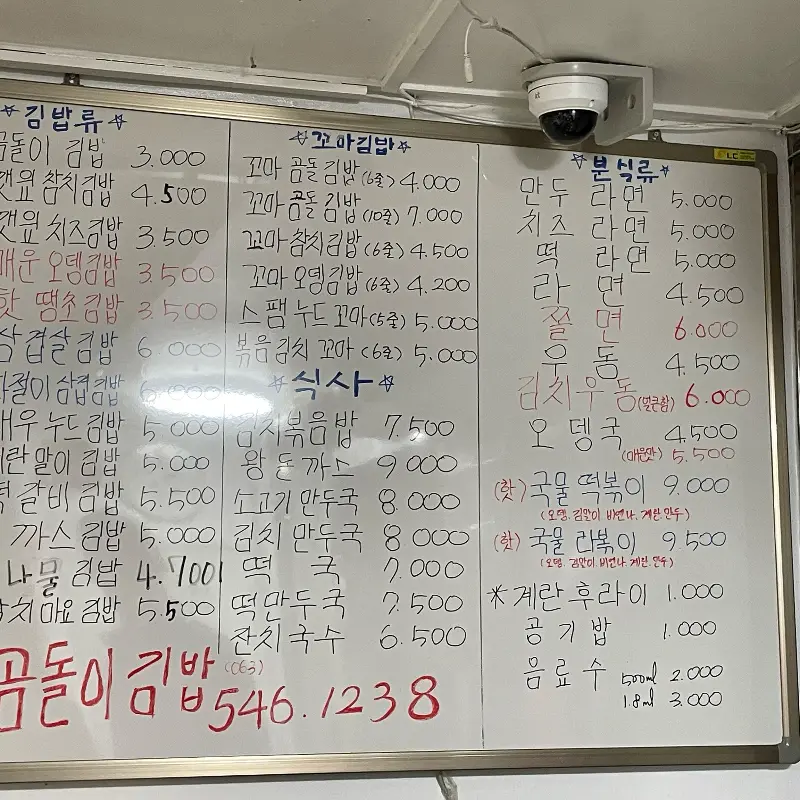 ☆김밥류☆
곰돌이 김밥 3.000
깻잎 참치김밥 4.500
깻잎 치즈김밥 3.500
매운 오뎅김밥 3.500
핫 땡초김밥 3.500
삼겹살김밥 6.000
파절이 삼겹김밥 6.000
새우 누드김밥 5.000
계란말이 김밥 5.000
떡갈비 김밥 5.500
까스김밥 5.000
나물 김밥 4.700
참치마요김밥 5.500
☆꼬마김밥☆
꼬마 곰돌김밥(6줄) 4.000
꼬마 곰돌김밥(10줄) 7.000
꼬마 참치김밥(6줄) 4.500
꼬마 오뎅김밥(6줄) 4.200
스팸누드 꼬마(5줄) 5.000
볶음김치 꼬마(6줄) 5.000
☆식사☆
김치볶음밥 7.500
왕돈까스 9.000
소고기만두국 8.000
김치만두국 8.000
떡국 7.000
떡만두국 7.500
잔치국수 6.500
☆분식류☆
만두라면 5.000
치즈라면 5.000
떡라면 5.000
라면 4.500
쫄면 6.000
우동 4.500
김치우동(얼큰함) 6.000
오뎅국 4.500
(매운맛) 5.500
(핫) 국물떡볶이 9.000
(오뎅.김말이.비엔나.계란.만두)
(핫) 국물라볶이 9.500
(오뎅.김말이.비엔나.계란.만두)
※계란후라이 1.000
공기밥 1.000
음료수 500ml 2.000
1.8ml 3.000
곰돌이김밥 (063)
546.1238